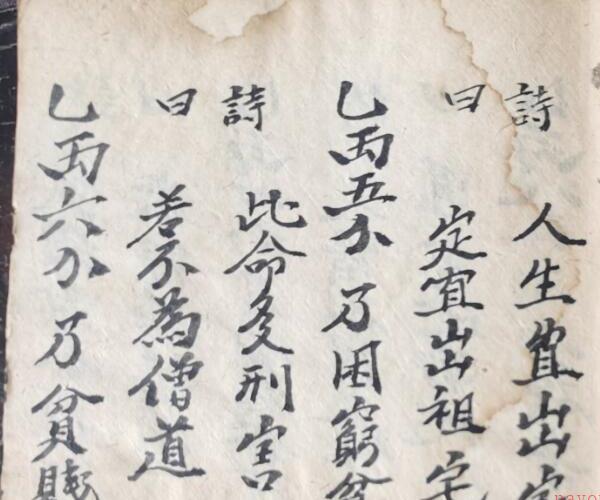 詩 人生宜出
曰 定宜出祖宗
乙両五分 乃困窮
詩 此命多刑害
曰 若不為僧道
乙両六分 乃貧賤